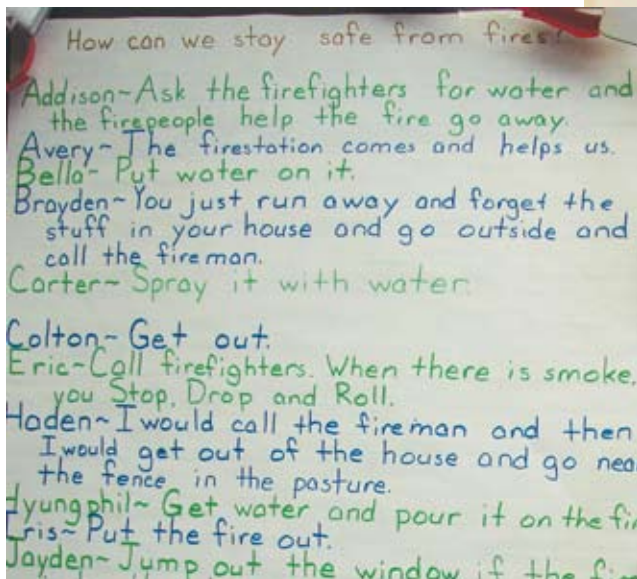 How can we stay safe from fires?
Addison~Ask the firefighters for water and
the firepeople help the fire go away.
Avery~The firestation comes and helps us.
Bella~Put water on it.
Brayden~You just run away and forget the
stuff in your house and go outside and
call the fireman.
Carter~Spray it with water.
Colton~Get out.
Eric~Call firefighters. When there is smoke,
you Stop, Drop and Roll.
Haden~I would call the fireman and then
I would get out of the house and go nea
the fence in the pasture.
Hyungphil~Get water and pour it on the fi
Iris~Put the fire out.
Jayden~Jump out the window if the fi